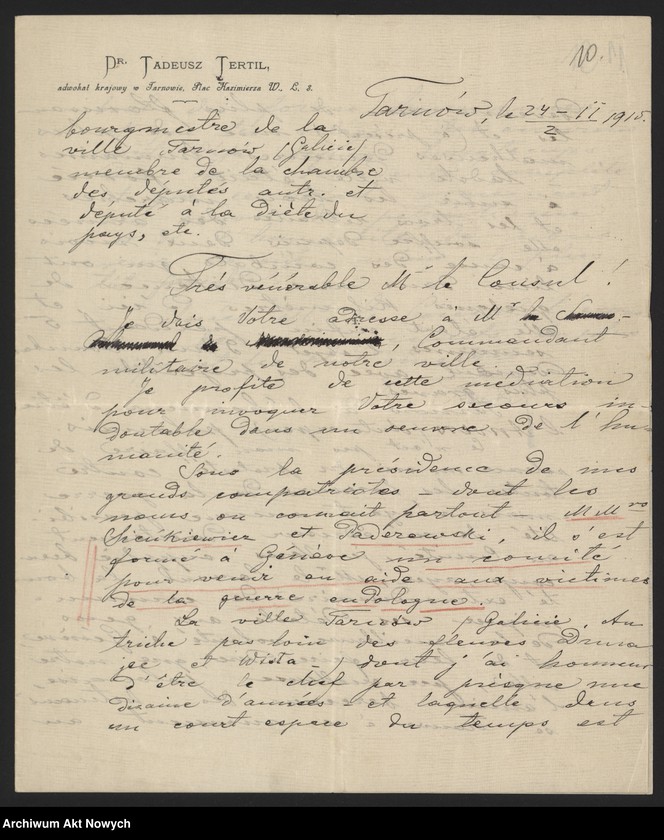 10.
DR. TADEUSZ TERTIL,
adwokat krajowy w Tarnowie, Plac Kazimierza W. L. 3.
Tarnów, le 24-II 1915.
2
bourgmestre de la
ville Tarnów (Galicie)
membre de la chambre
des députés autr. et
député à la Diète du
pays, etc.
Très vénérable Mr le Consul!
Je dois Votre adresse à Mr
, Commandant
militaire de notre ville.
Je profite de cette médiation
pour invoquer Votre secours in-
doutable dans un oeuvre de l'hu-
manité.
Sous la présidence de mes
grands compatriotes – dont les
noms on connait partout – M Mrs
Sienkiewicz et Paderewski, il s'est
formé à Génève un comité
pour venir en aide aux victimes
de la guerre en Pologne.
La ville Tarnów Galicie, Au-
triche pas loin des fleuves Duna-
jec et Wisła –) dont j'ai honneur
d'être le chef par presque une
dizaine d'années – et laquelle dans
un court espace du temps est
Archiwum Akt Nowych